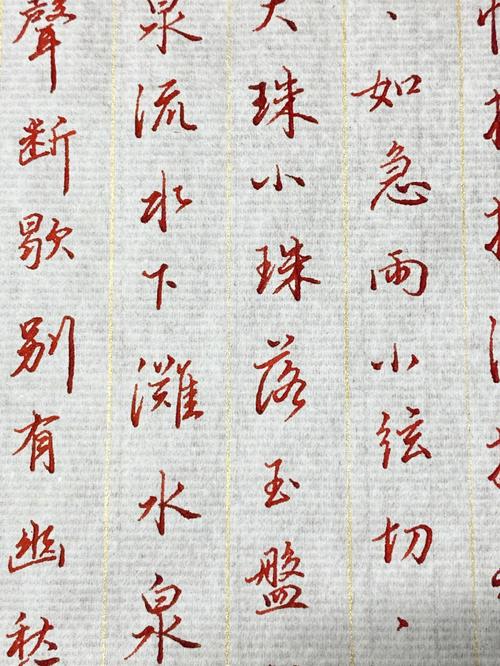 、如急雨小弦切、
大珠小珠落玉盤
泉流水下灘水泉
聲断歇别有幽愁